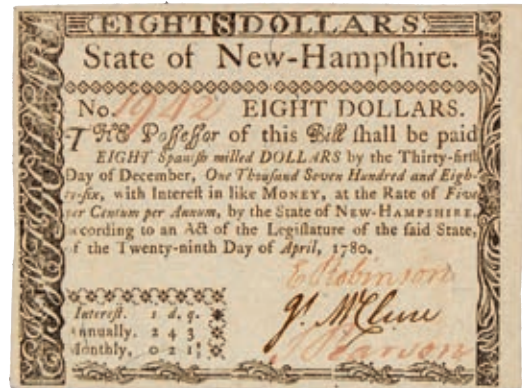 EIGHT 8 DOLLARS.
State of New-Hampſhire.
No. 1942 EIGHT DOLLARS.
THE Poſſeſſor of this Bill ſhall be paid
EIGHT Spaniſh milled DOLLARS by the Thirty-firſt
Day of December, One Thouſand Seven Hundred and Eigh-
ty-ſix, with Intereſt in like MONEY, at the Rate of Five
per Centum per Annum, by the State of NEW-HAMPSHIRE,
according to an Act of the Legiſlature of the ſaid State,
of the Twenty-ninth Day of April, 1780.
E Robinson
Js. McClure
J Pearson
Intereſt. s d. q.
Annually. 2 4 3
Monthly. 0 2 1